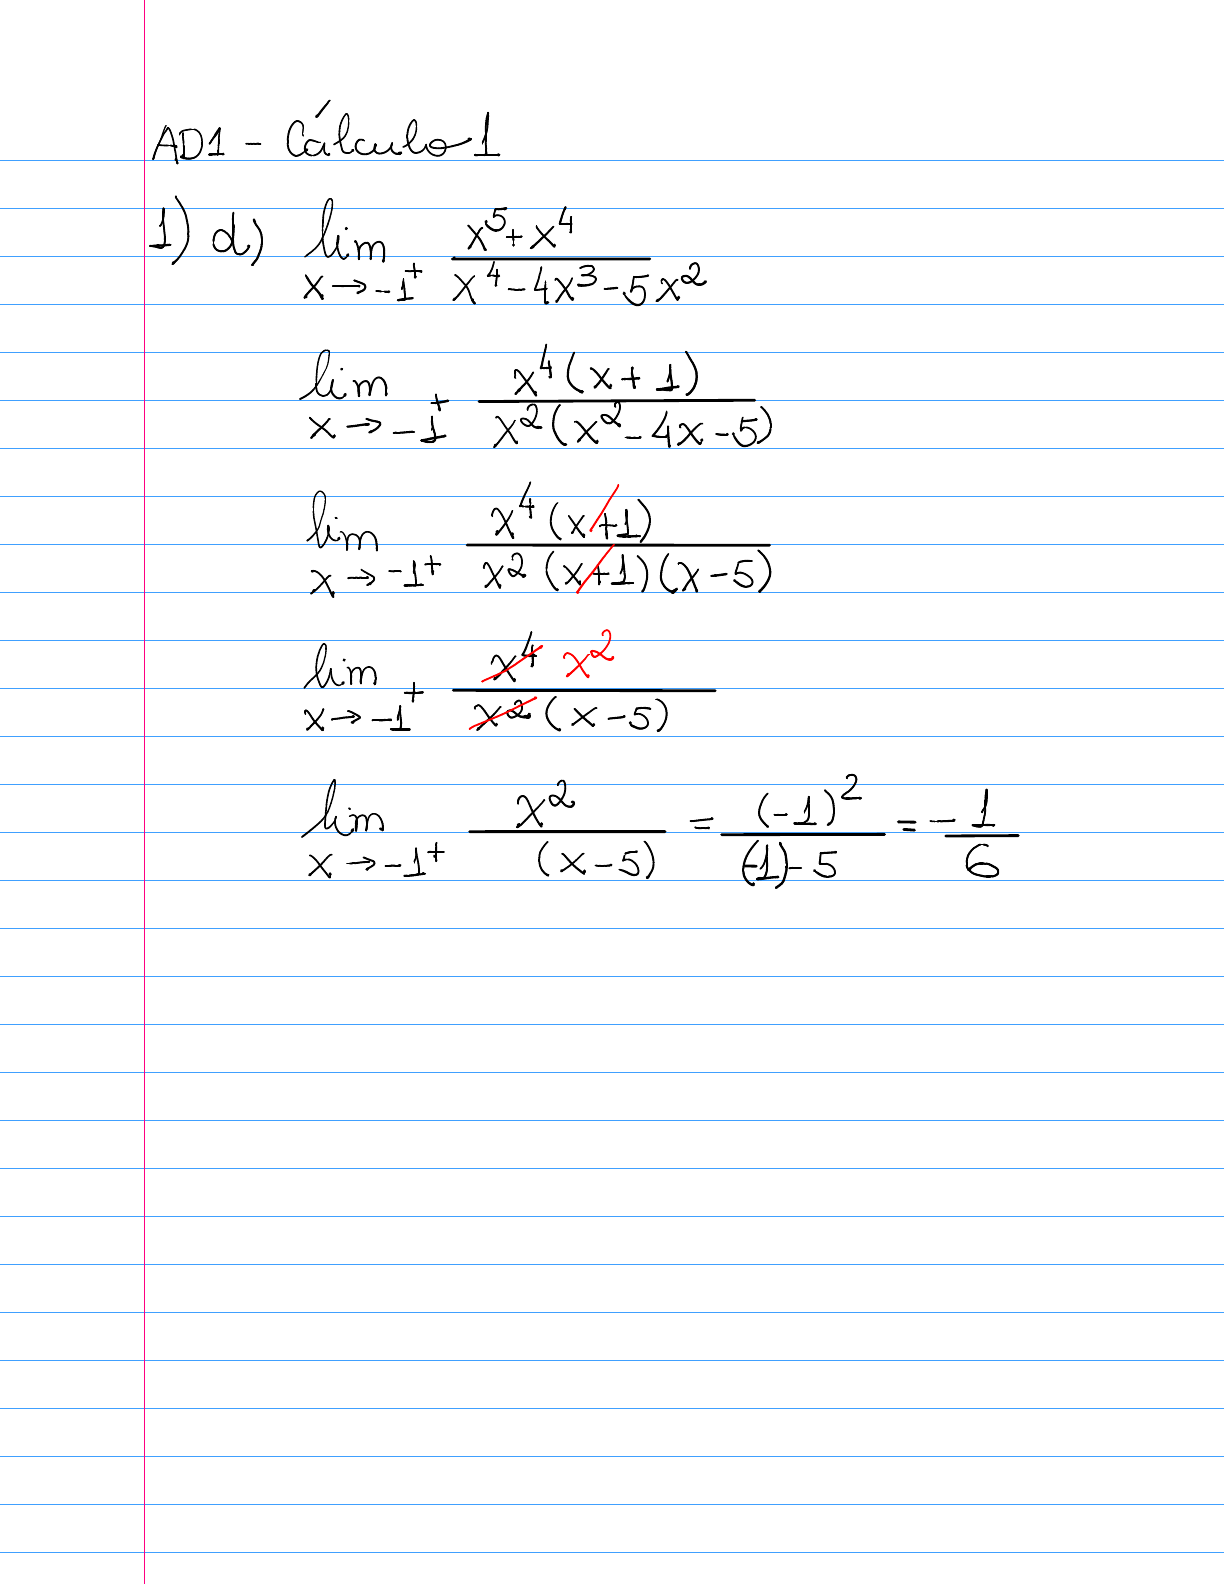 AD1 - Cálculo 1
1) d) lim x→-1⁺ (x⁵+x⁴)/(x⁴-4x³-5x²)
lim x→-1⁺ (x⁴(x+1))/(x²(x²-4x-5))
lim x→-1⁺ (x⁴(x+1))/(x²(x+1)(x-5))
lim x→-1⁺ (x⁴ x²)/(x²(x-5))
lim x→-1⁺ x²/(x-5) = (-1)²/((-1)-5) = -1/6